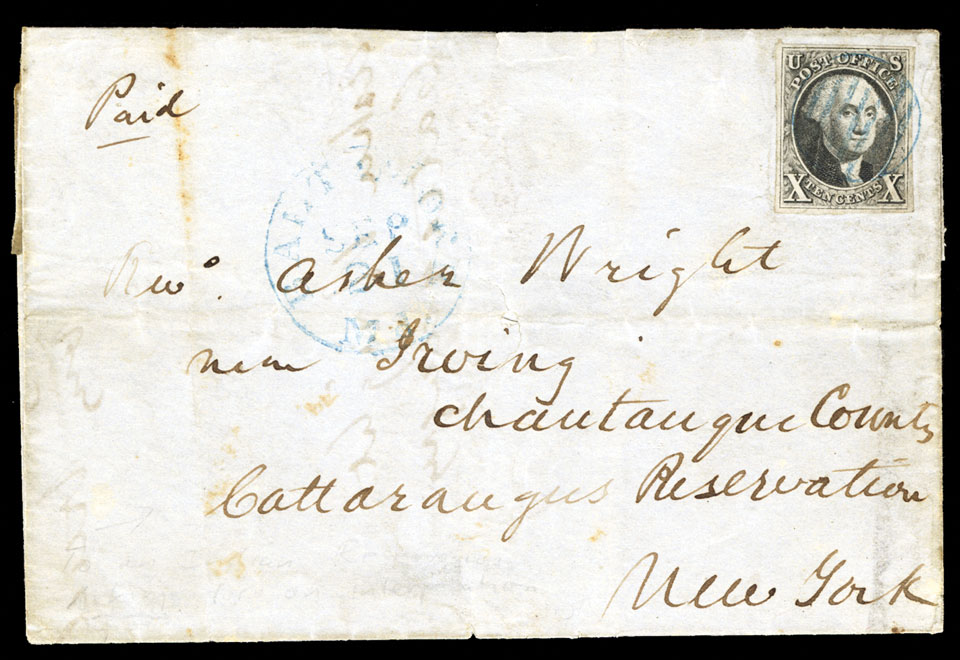 Paid
U S
POST OFFICE
X TEN CENTS X
SEP
21
MD
Revᵒ. Asher Wright
near Irving
Chautauque County
Cattaraugus Reservation
New York